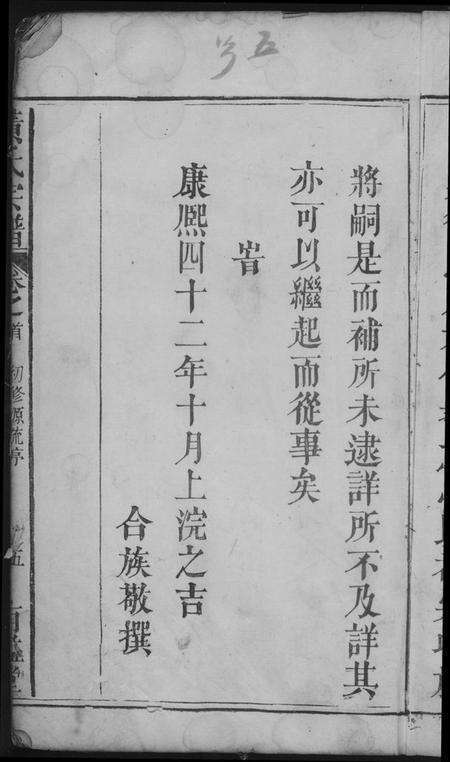 五
將嗣是而補所未逮詳所不及詳其
亦可以繼起而從事矣
旹
康熙四十二年十月上浣之吉
合族敬撰
黃氏宗譜
卷之首
初修源流序
五